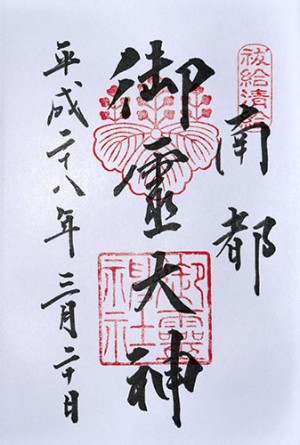 祓給清
南都
御霊大神
御霊神社
平成二十八年三月二十日